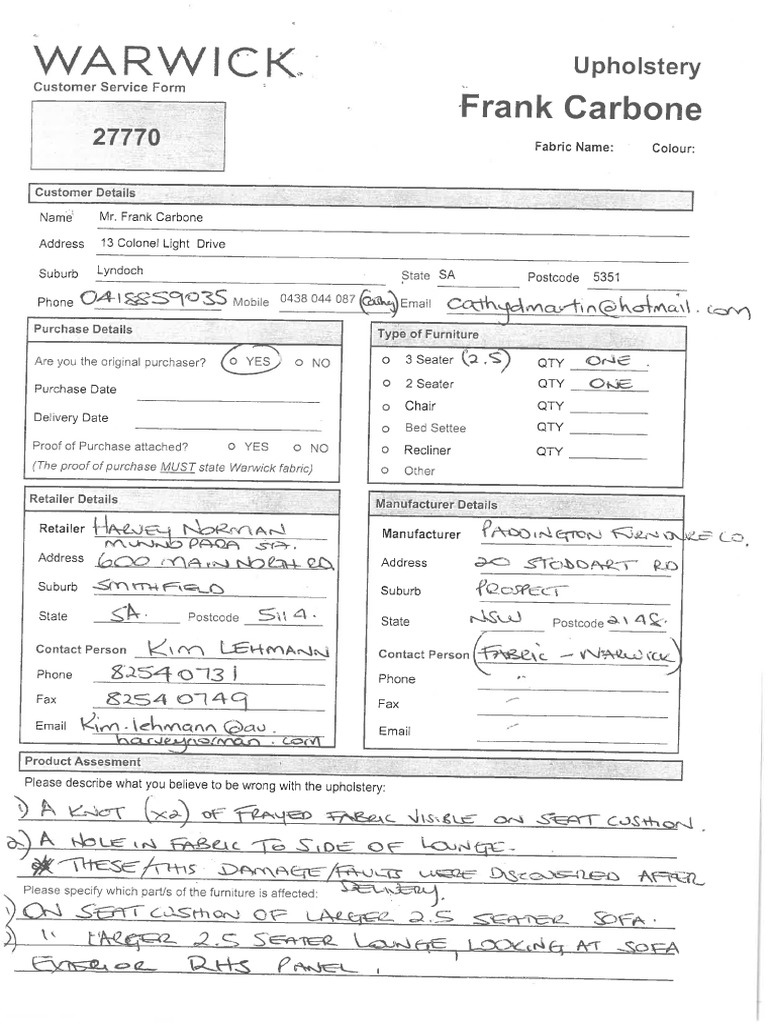 WARWICK
Customer Service Form
Upholstery
27770
Frank Carbone
Fabric Name: Colour:
Customer Details
Name Mr. Frank Carbone
Address 13 Colonel Light Drive
Suburb Lyndoch State SA Postcode 5351
Phone 0418859035 Mobile 0438 044 087 (Cathy) Email cathydmartin@hotmail.com
Purchase Details
Are you the original purchaser? YES NO
Purchase Date
Delivery Date
Proof of Purchase attached? YES NO
(The proof of purchase MUST state Warwick fabric)
Type of Furniture
3 Seater (2.5) QTY ONE.
2 Seater QTY ONE
Chair QTY
Bed Settee QTY
Recliner QTY
Other
Retailer Details
Retailer HARVEY NORMAN
MUNNO PARA
Address 600 MAIN NORTH RD
Suburb SMITHFIELD
State SA. Postcode 5114.
Contact Person KIM LEHMANN
Phone 8254 0731
Fax 8254 0749
Email Kim.lehmann@au.
harveynorman.com
Manufacturer Details
Manufacturer PADDINGTON FURNITURE CO.
Address 20 STODDART RD
Suburb PROSPECT
State NSW Postcode 2148.
Contact Person (FABRIC - WARWICK)
Phone
Fax
Email
Product Assesment
Please describe what you believe to be wrong with the upholstery:
1) A KNOT (x2) OF FRAYED FABRIC VISIBLE ON SEAT CUSHION.
2) A HOLE IN FABRIC TO SIDE OF LOUNGE.
* THESE/THIS DAMAGE/FAULTS WERE DISCOVERED AFTER
DELIVERY.
Please specify which part/s of the furniture is affected:
1) ON SEAT CUSHION OF LARGER 2.5 SEATER SOFA.
2) " LARGER 2.5 SEATER LOUNGE, LOOKING AT SOFA
EXTERIOR RHS PANEL.